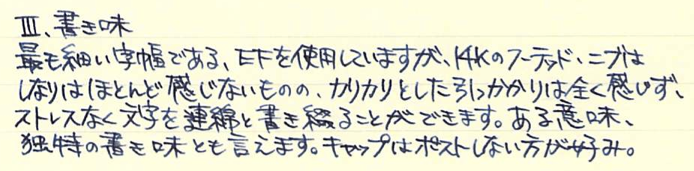 Ⅲ、書き味
最も細い字幅である、EFを使用していますが、14Kのフーデッド・ニブは
しなりはほとんど感じないものの、カリカリとした引っかかりは全く感じず、
ストレスなく文字を連綿と書き綴ることができます。ある意味、
独特の書き味とも言えます。キャップはポストしない方が好み。